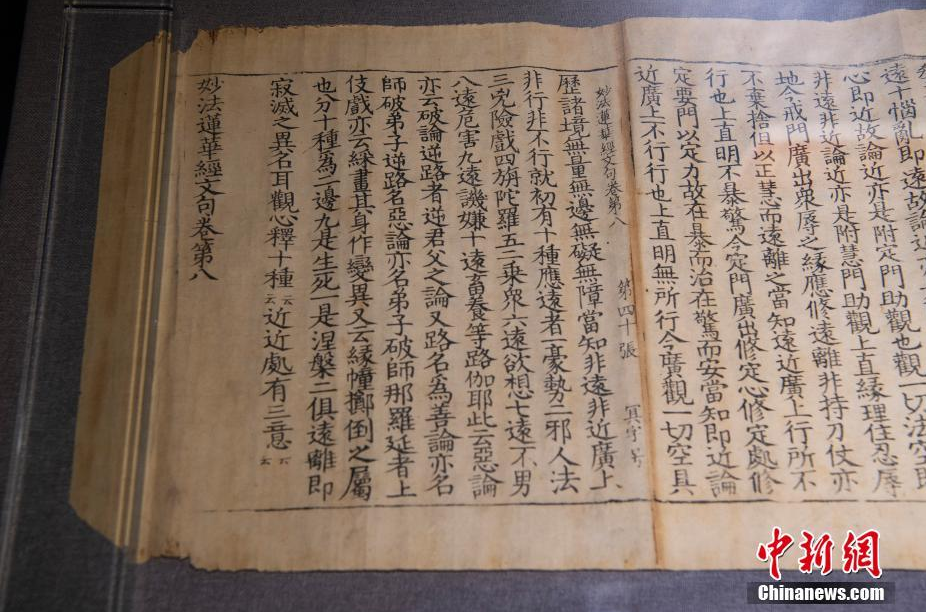 遠十惱亂即遠故論近
心即近故論近亦是附定門助觀也觀一切法空即
非遠非近論近亦是附慧門助觀上直緣理住忍辱
地今戒門廣出眾辱之緣應修遠離非持刀仗亦
不棄捨但以正慧而遠離之當知遠近廣上行所不
行也上直明不暴驚今定門廣出修定心修定處修
定要門以定力故在暴而治在驚而安當知即近論
近廣上不行行也上直明無所行今廣觀一切空具
妙法蓮華經文句卷第八 第四十張 冥字号
歷諸境無量無邊無礙無障當知非遠非近廣上
非行非不行就初有十種應遠者一豪勢二邪人法
三兇險戲四旃陀羅五二乘眾六遠欲想七遠不男
八遠危害九遠譏嫌十遠畜養等路伽耶此云惡論
亦云破論逆路者逆君父之論又路名為善論亦名
師破弟子逆路名惡論亦名弟子破師那羅延者上
伎戲亦云綵畫其身作變異又云緣幢擲倒之屬
也分十種為二邊九是生死一是涅槃二俱遠離即
寂滅之異名耳觀心釋十種云云近近處有三意云云
妙法蓮華經文句卷第八
中新網
Chinanews.com